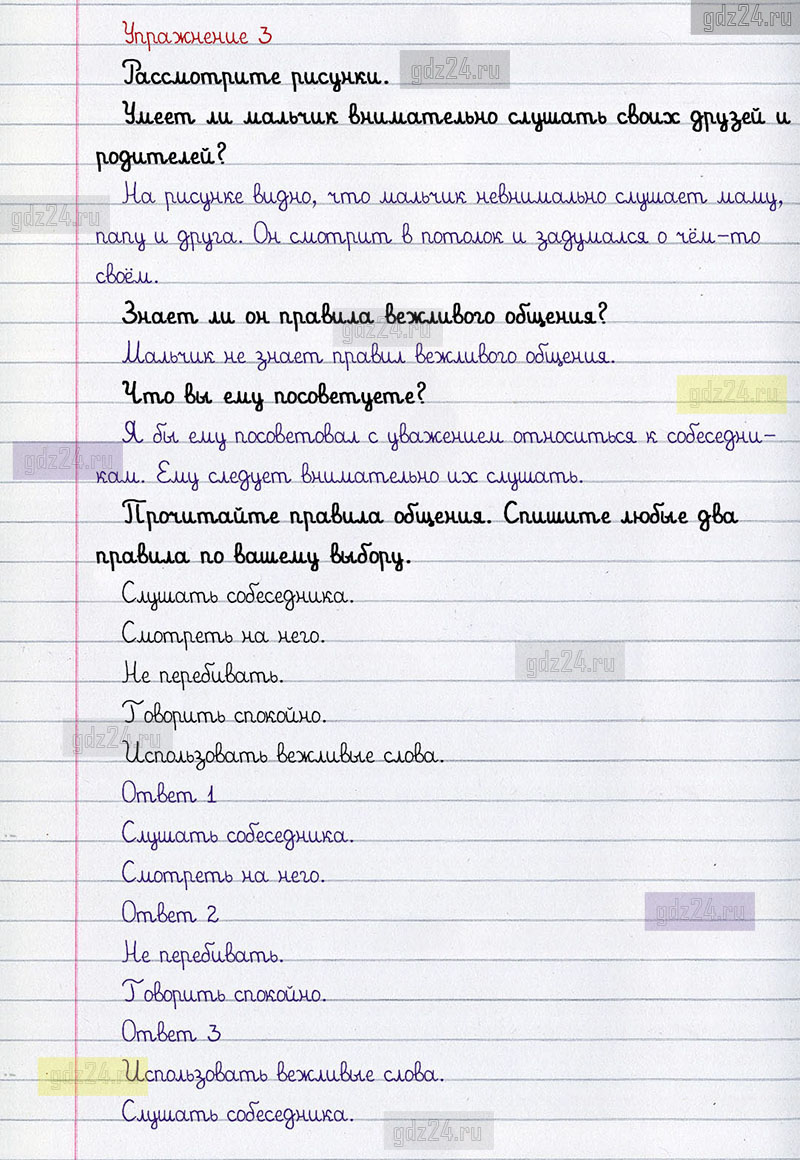 gdz24.ru
Упражнение 3
Рассмотрите рисунки.
gdz24.ru
Умеет ли мальчик внимательно слушать своих друзей и
родителей?
На рисунке видно, что мальчик невнимально слушает маму,
gdz24.ru
папу и друга. Он смотрит в потолок и задумался о чём-то
своём.
Знает ли он правила вежливого общения?
gdz24.ru
Мальчик не знает правил вежливого общения.
Что вы ему посоветуете?
gdz24.ru
Я бы ему посоветовал с уважением относиться к собеседни-
gdz24.ru
кам. Ему следует внимательно их слушать.
Прочитайте правила общения. Спишите любые два
правила по вашему выбору.
Слушать собеседника.
Смотреть на него.
gdz24.ru
Не перебивать.
Говорить спокойно.
gdz24.ru
Использовать вежливые слова.
Ответ 1
Слушать собеседника.
Смотреть на него.
Ответ 2
gdz24.ru
Не перебивать.
Говорить спокойно.
Ответ 3
gdz24.ru
Использовать вежливые слова.
Слушать собеседника.
gdz24.ru